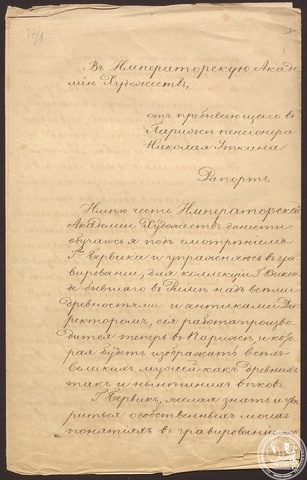 Въ Императорскую Акаде
мію Художествъ,
отъ пребывающаго въ
Парижѣ пенсіонера
Николая Уткина
Рапортъ
Имѣю честь Императорской
Академіи Художествъ донести
обучаюсь я подъ смотрѣніемъ
Гна Бервика и упражняюсь въ гра
вированіи, для коллекціи Г. Виско
бывшаго въ Римѣ надъ всѣми
древностями и антиками Ди
ректоромъ, сія работа произво
дится теперь въ Парижѣ, и кото
рая будетъ изображать всѣхъ
великихъ мужей какъ древнихъ
такъ и нынѣшнихъ вѣковъ.
Г. Бервикъ, желая знать и увѣ
риться особственныхъ моихъ
понятіяхъ въ гравированіи